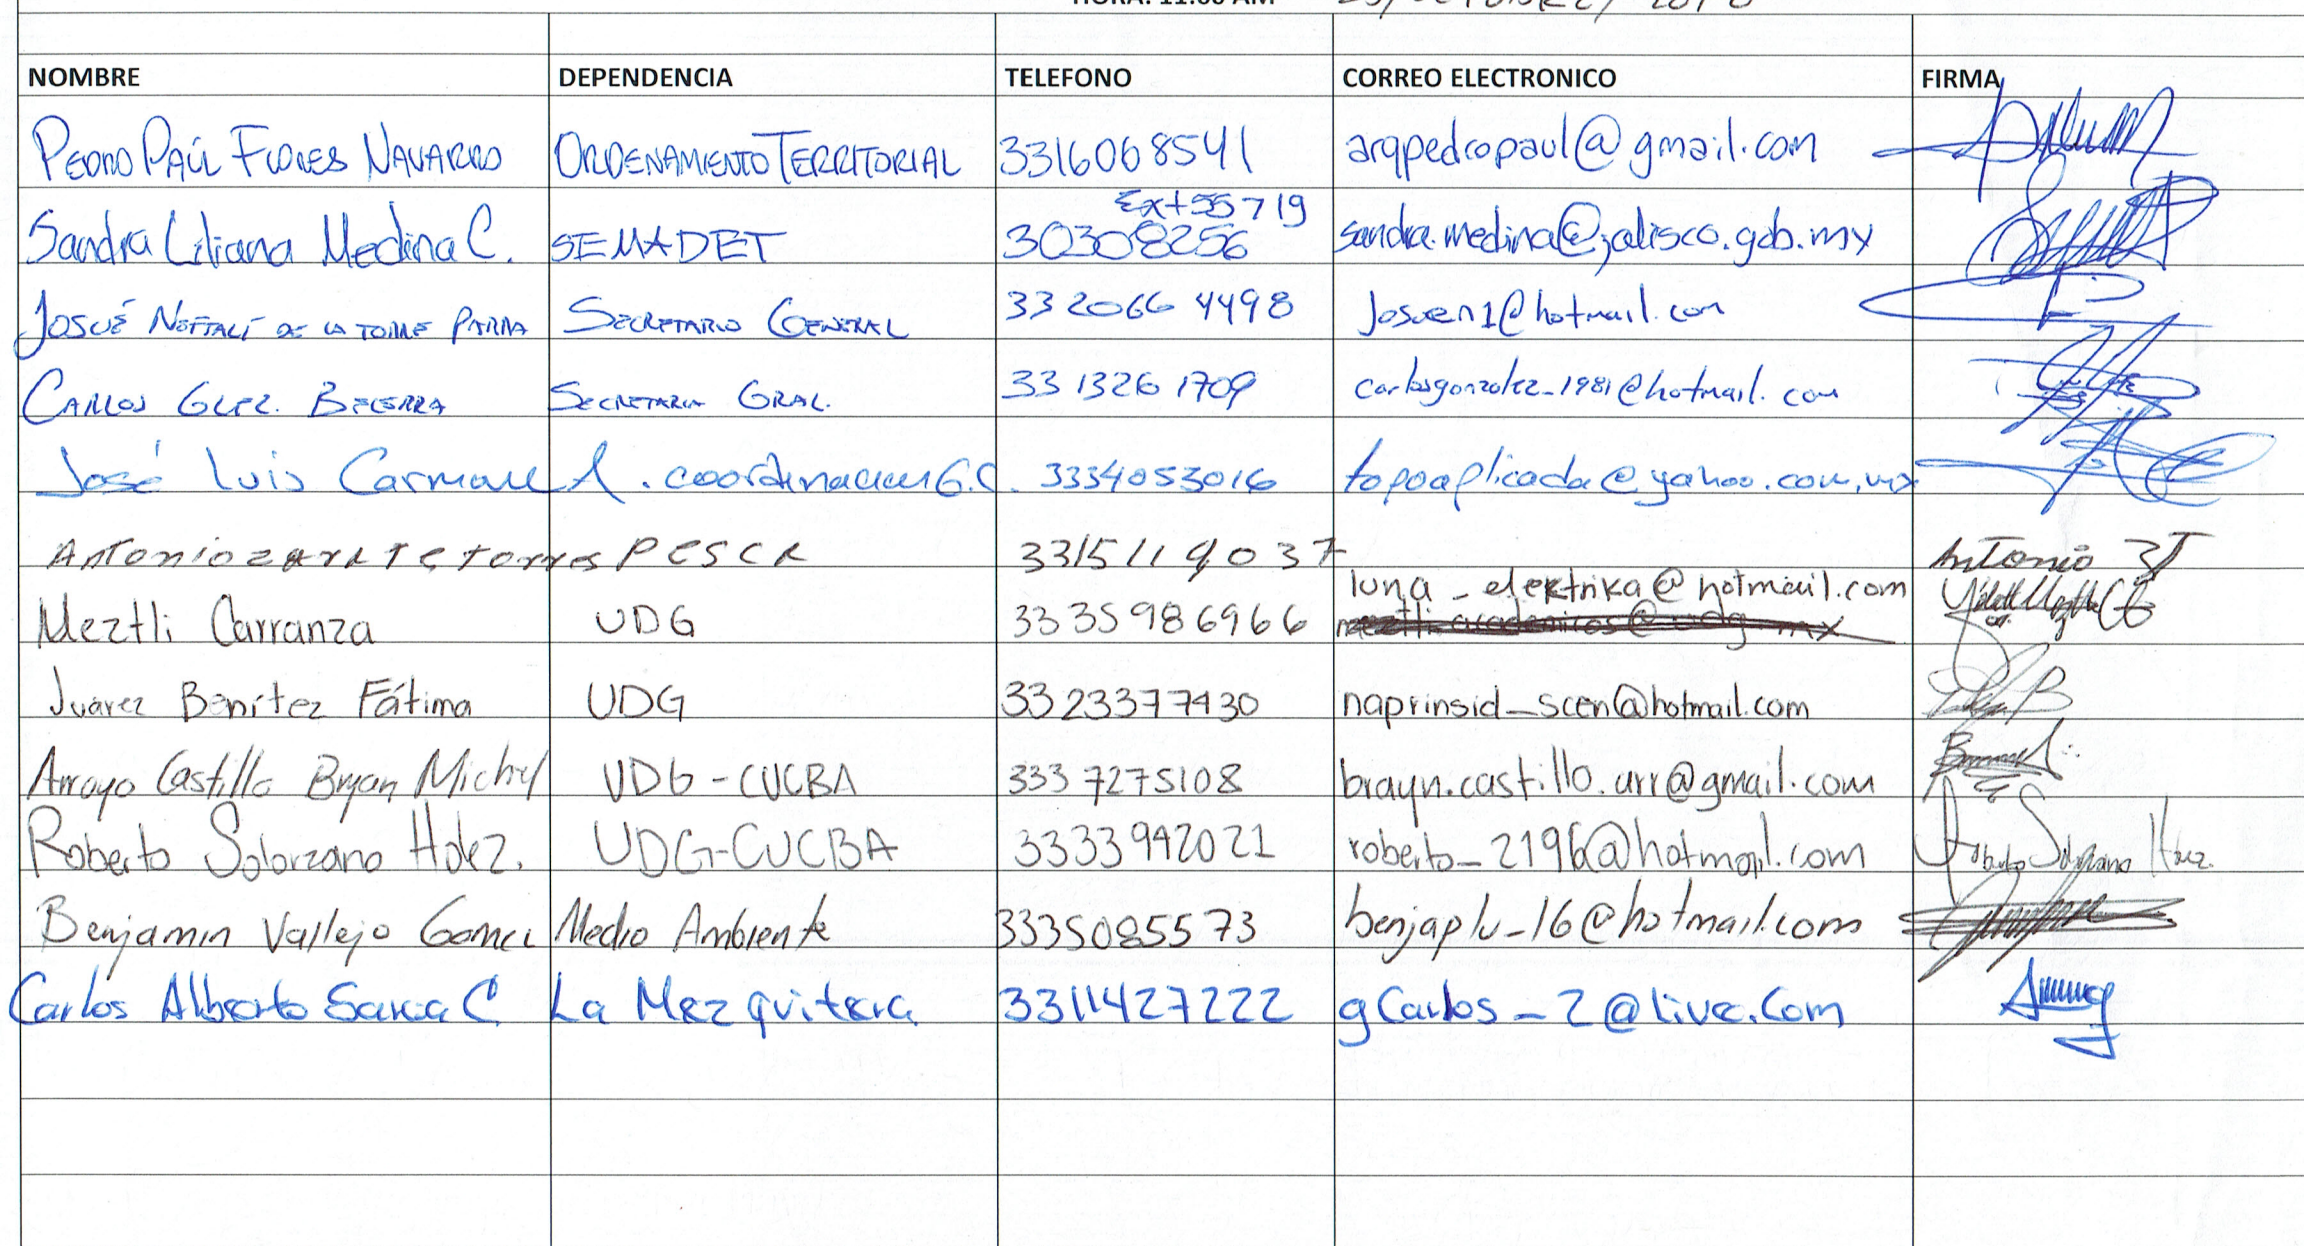 HORA: 11:00 AM
NOMBRE DEPENDENCIA TELEFONO CORREO ELECTRONICO FIRMA
PEDRO PAÚL FLORES NAVARRO ORDENAMIENTO TERRITORIAL 3316068541 arqpedropaul@gmail.com
Ext 55719
Sandra Liliana Medina C. SEMADET 30308256 sandra.medina@jalisco.gob.mx
JOSUÉ NEFTALÍ DE LA TORRE PARRA SECRETARIO GENERAL 33 2066 4498 Josuen1@hotmail.com
CARLOS GLEZ. BECERRA SECRETARIA GRAL. 33 1326 1709 carlosgonzalez_1981@hotmail.com
José Luis Carmona A. coordinacion G.C. 3334053016 topoaplicada@yahoo.com.mx
Antonio zarate torres PESCA 3315119037 Antonio ZT
luna_elektrika@hotmail.com
Meztli Carranza UDG 3335986966
Juárez Benítez Fátima UDG 3323377430 naprinsid_scen@hotmail.com
Arroyo Castillo Bryan Michel UDG-CUCBA 333 7275108 brayn.castillo.arr@gmail.com
Roberto Solorzano Hdez. UDG-CUCBA 3333942021 roberto_2196@hotmail.com Roberto Solorzano Hdez.
Benjamin Vallejo Gomez Medio Ambiente 3335085573 benjaplu_16@hotmail.com
Carlos Alberto Garcia C La Mezquitera 3311427222 gCarlos_2@live.Com